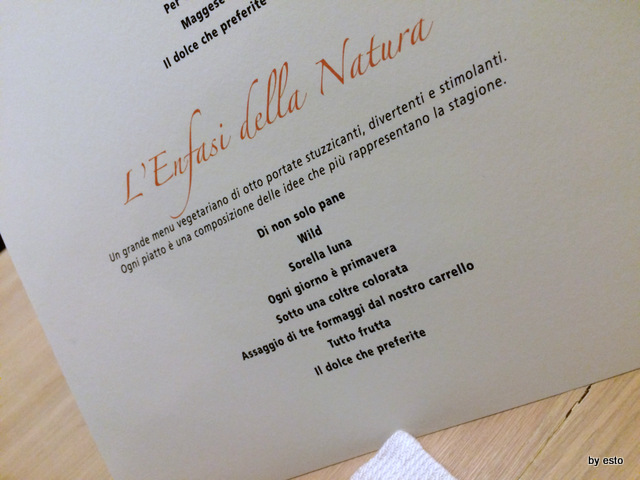 Per
Maggese
Il dolce che preferite
L'Enfasi della Natura
Un grande menu vegetariano di otto portate stuzzicanti, divertenti e stimolanti.
Ogni piatto è una composizione delle idee che più rappresentano la stagione.
Di non solo pane
Wild
Sorella luna
Ogni giorno è primavera
Sotto una coltre colorata
Assaggio di tre formaggi dal nostro carrello
Tutto frutta
Il dolce che preferite
by esto